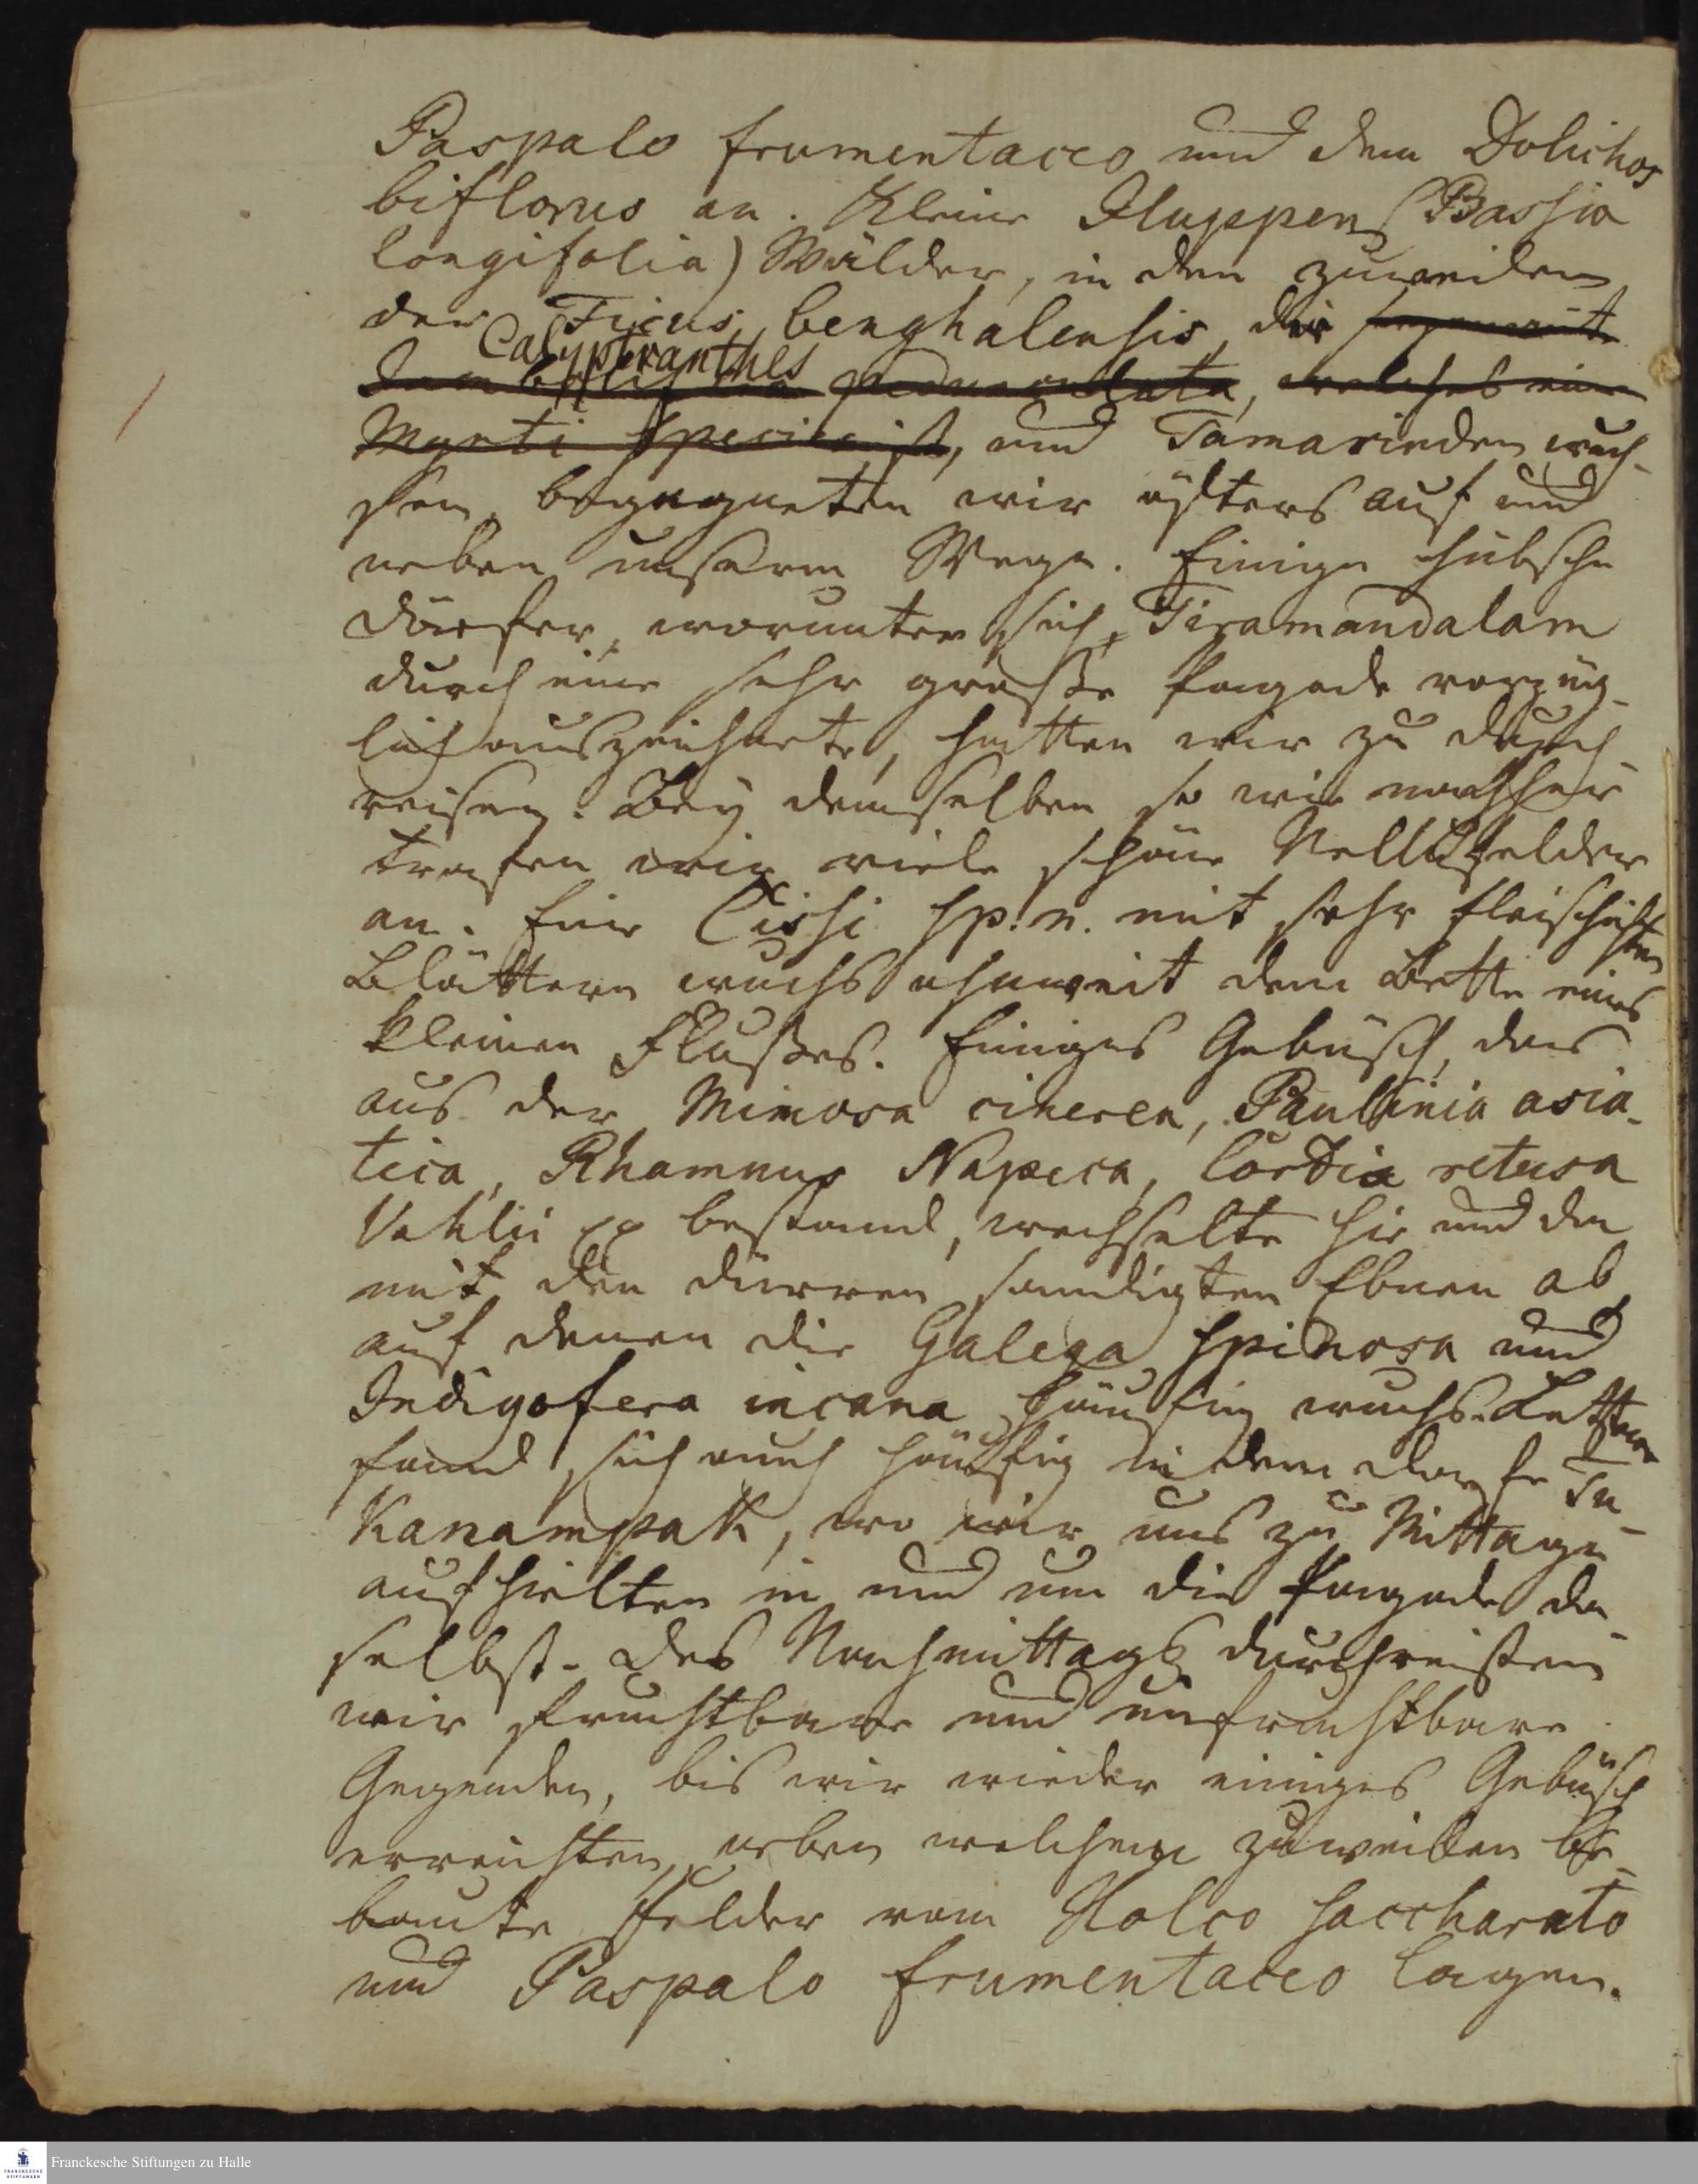 Paspalo frumentaceo und dem Dolichos
biflorus an. Kleine Iluppen (Bassia
longifolia) Wälder, in den zuweilen
der Ficus benghalensis, die sogenante
Calyptranthes
Jambolifera pedunculata, welches eine
Myrti species ist, und Tamarinden wuch-
sen, begegneten wir öfters auf und
neben unserm Wege. Einige hübsche
Dörfer, worunter sich Tiramandalam
durch eine sehr große Pagode vorzüg-
lich auszeichnete, hatten wir zu durch-
reisen. Bey demselben so wie nachher
trafen wir viele schöne Nellifelder
an. Eine Cissi sp. n. mit sehr fleischichten
Blättern wuchs ohnweit dem Bette eines
kleinen Flußes. Einiges Gebüsch, das
aus der Mimosa cinerea, Paullinia asia-
tica, Rhamnus Napeca, Cordia retusa
Vahlii pp bestand, wechselte hie und da
mit den dürren sandigten Ebnen ab,
auf denen die Galega spinosa und
Indigofera incana häufig wuchs. Letztere
fand sich auch häufig in dem Dorfe Tu-
kanampatt, wo wir uns zu Mittage
aufhielten in und um die Pagode da
selbst. Des Nachmittags durchreisten
wir fruchtbare und unfruchtbare
Gegenden, bis wir wieder einiges Gebüsch
erreichten, neben welchem zuweilen be-
baute Felder vom Holco saccharato
und Paspalo frumentaceo lagen.
Franckesche Stiftungen zu Halle
FRANCKESCHE
STIFTUNGEN